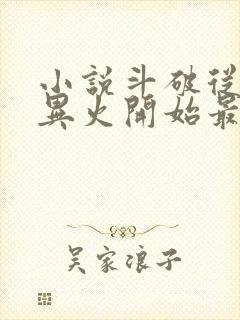 小說斗破從
異火開始最
吴家浪子